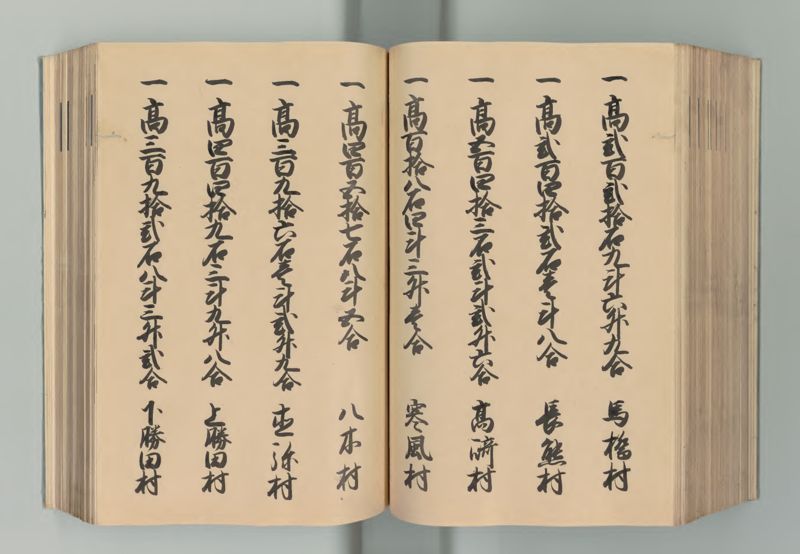 一 高弐百弐拾石九斗六升九合 馬橋村
一 高弐百四拾弐石壱斗八合 長熊村
一 高五百四拾三石弐斗弐升六合 高崎村
一 高百拾八石四斗三升壱合 寒風村
一 高四百五拾七石八斗五合 八木村
一 高三百九拾六石壱斗弐升九合 直弥村
一 高四百四拾九石三斗九升八合 上勝田村
一 高三百九拾弐石八斗三升弐合 下勝田村